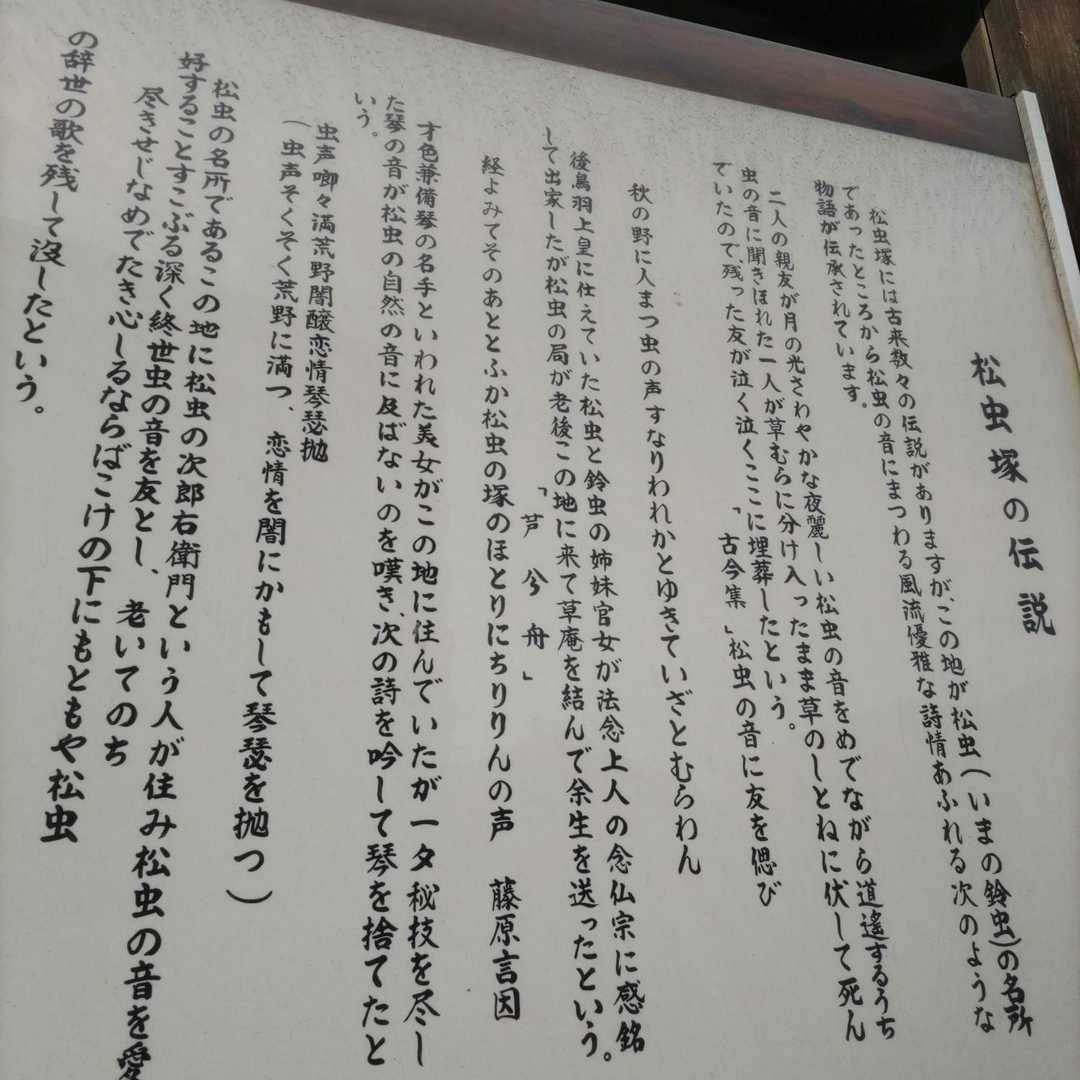 松虫塚の伝説
松虫塚には古来数々の伝説がありますが、この地が松虫(いまの鈴虫)の名所
であったところから松虫の音にまつわる風流優雅な詩情あふれる次のような
物語が伝承されています。
二人の親友が月の光さわやかな夜麗しい松虫の音をめでながら逍遙するうち
虫の音に聞きほれた一人が草むらに分け入ったまま草のしとねに伏して死ん
ていたので、残った友が泣く泣くここに埋葬したという。
「古今集」松虫の音に友を偲び
秋の野に人まつ虫の声すなりわれかとゆきていざとむらわん
後鳥羽上皇に仕えていた松虫と鈴虫の姉妹官女が法念上人の念仏宗に感銘
して出家したが松虫の局が老後この地に来て草庵を結んで余生を送ったという。
「芦兮舟」
経よみてそのあととふか松虫の塚のほとりにちりりんの声 藤原言因
才色兼備琴の名手といわれた美女がこの地に住んでいたが一夕秘技を尽し
た琴の音が松虫の自然の音に及ばないのを嘆き、次の詩を吟して琴を捨てたと
いう。
虫声喞々満荒野闇醸恋情琴瑟抛
(虫声そくそく荒野に満つ、恋情を闇にかもして琴瑟を抛つ)
松虫の名所であるこの地に松虫の次郎右衛門という人が住み松虫の音を愛
好することすこぶる深く終世虫の音を友とし、老いてのち
尽きせじなめでたき心しるならばこけの下にもともや松虫
の辞世の歌を残して没したという。